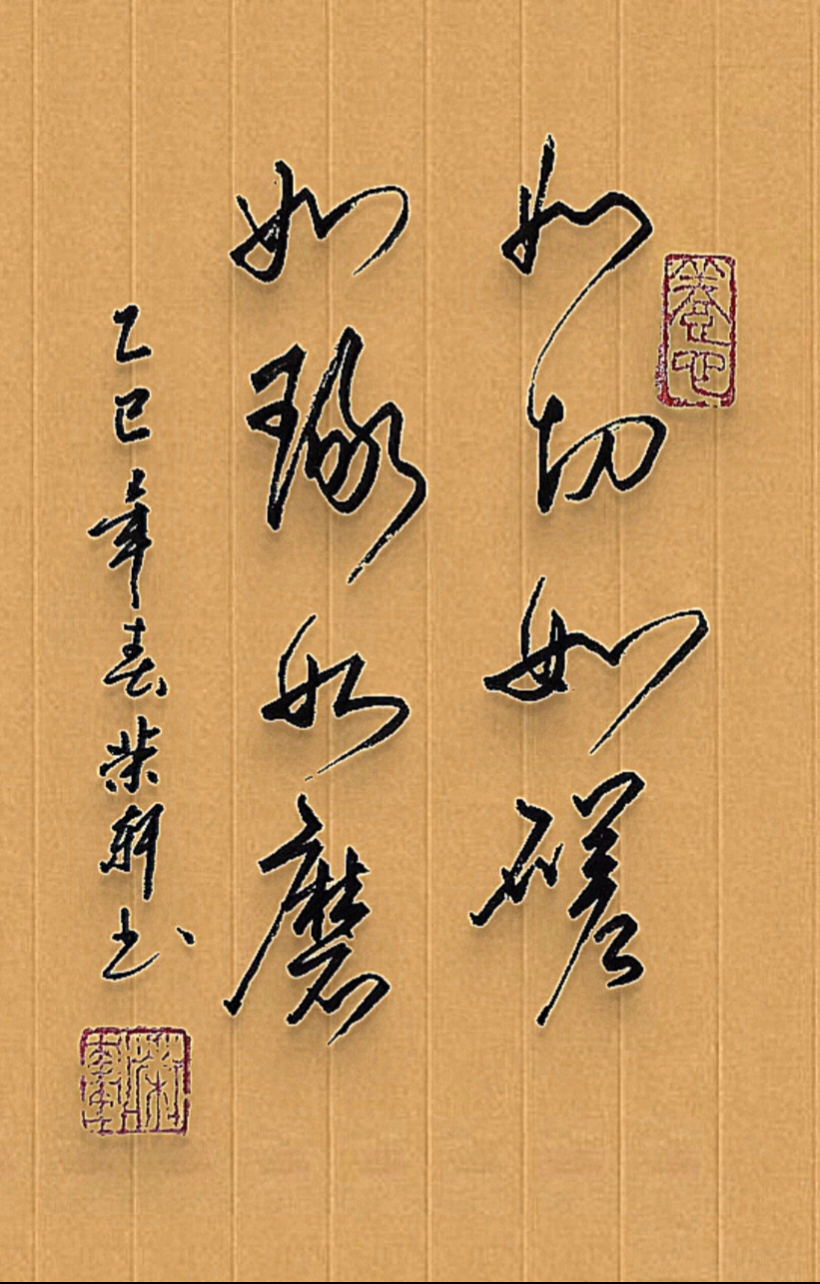 如切如磋
如琢如磨
乙巳年春荣轩书